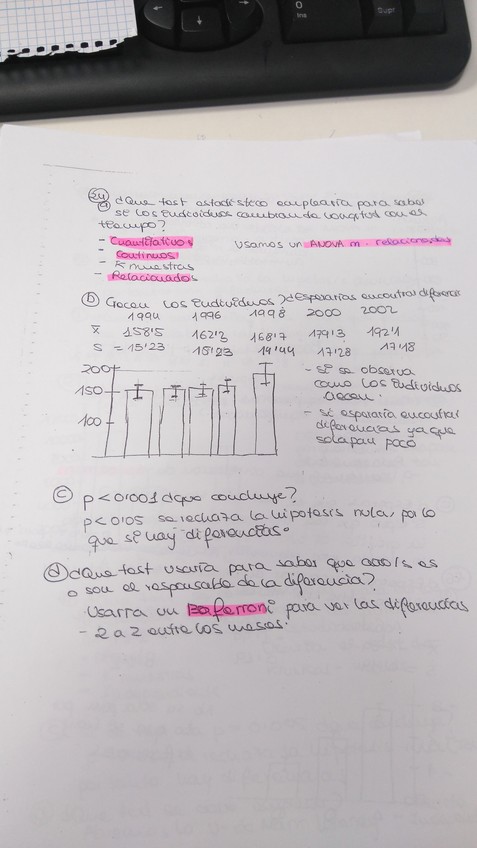 24
a) ¿Que test estadístico emplearía para saber
si los individuos cambian de longitud con el
tiempo?
- Cuantitativos
- Continuos
- K muestras
- Relacionados
Usamos un ANOVA m. relacionadas
b) Crecen los individuos? ¿Esperarías encontrar diferencias
1994 1996 1998 2000 2002
x̄ 158'5 162'3 168'7 179'3 192'1
S = 15'23 15'23 14'44 17'28 17'18
200
150
100
- Si se observa
como los individuos
crecen.
- Si esperaría encontrar
diferencias ya que
solapan poco
c) p<0'001 ¿que concluye?
p<0'05 se rechaza la hipotesis nula, por lo
que si hay diferencias.
d) ¿Que test usaría para saber que año/s es
o son el responsable de la diferencia?
Usaría un Bonferroni para ver las diferencias
- 2 a 2 entre los meses.
Ins
Supr